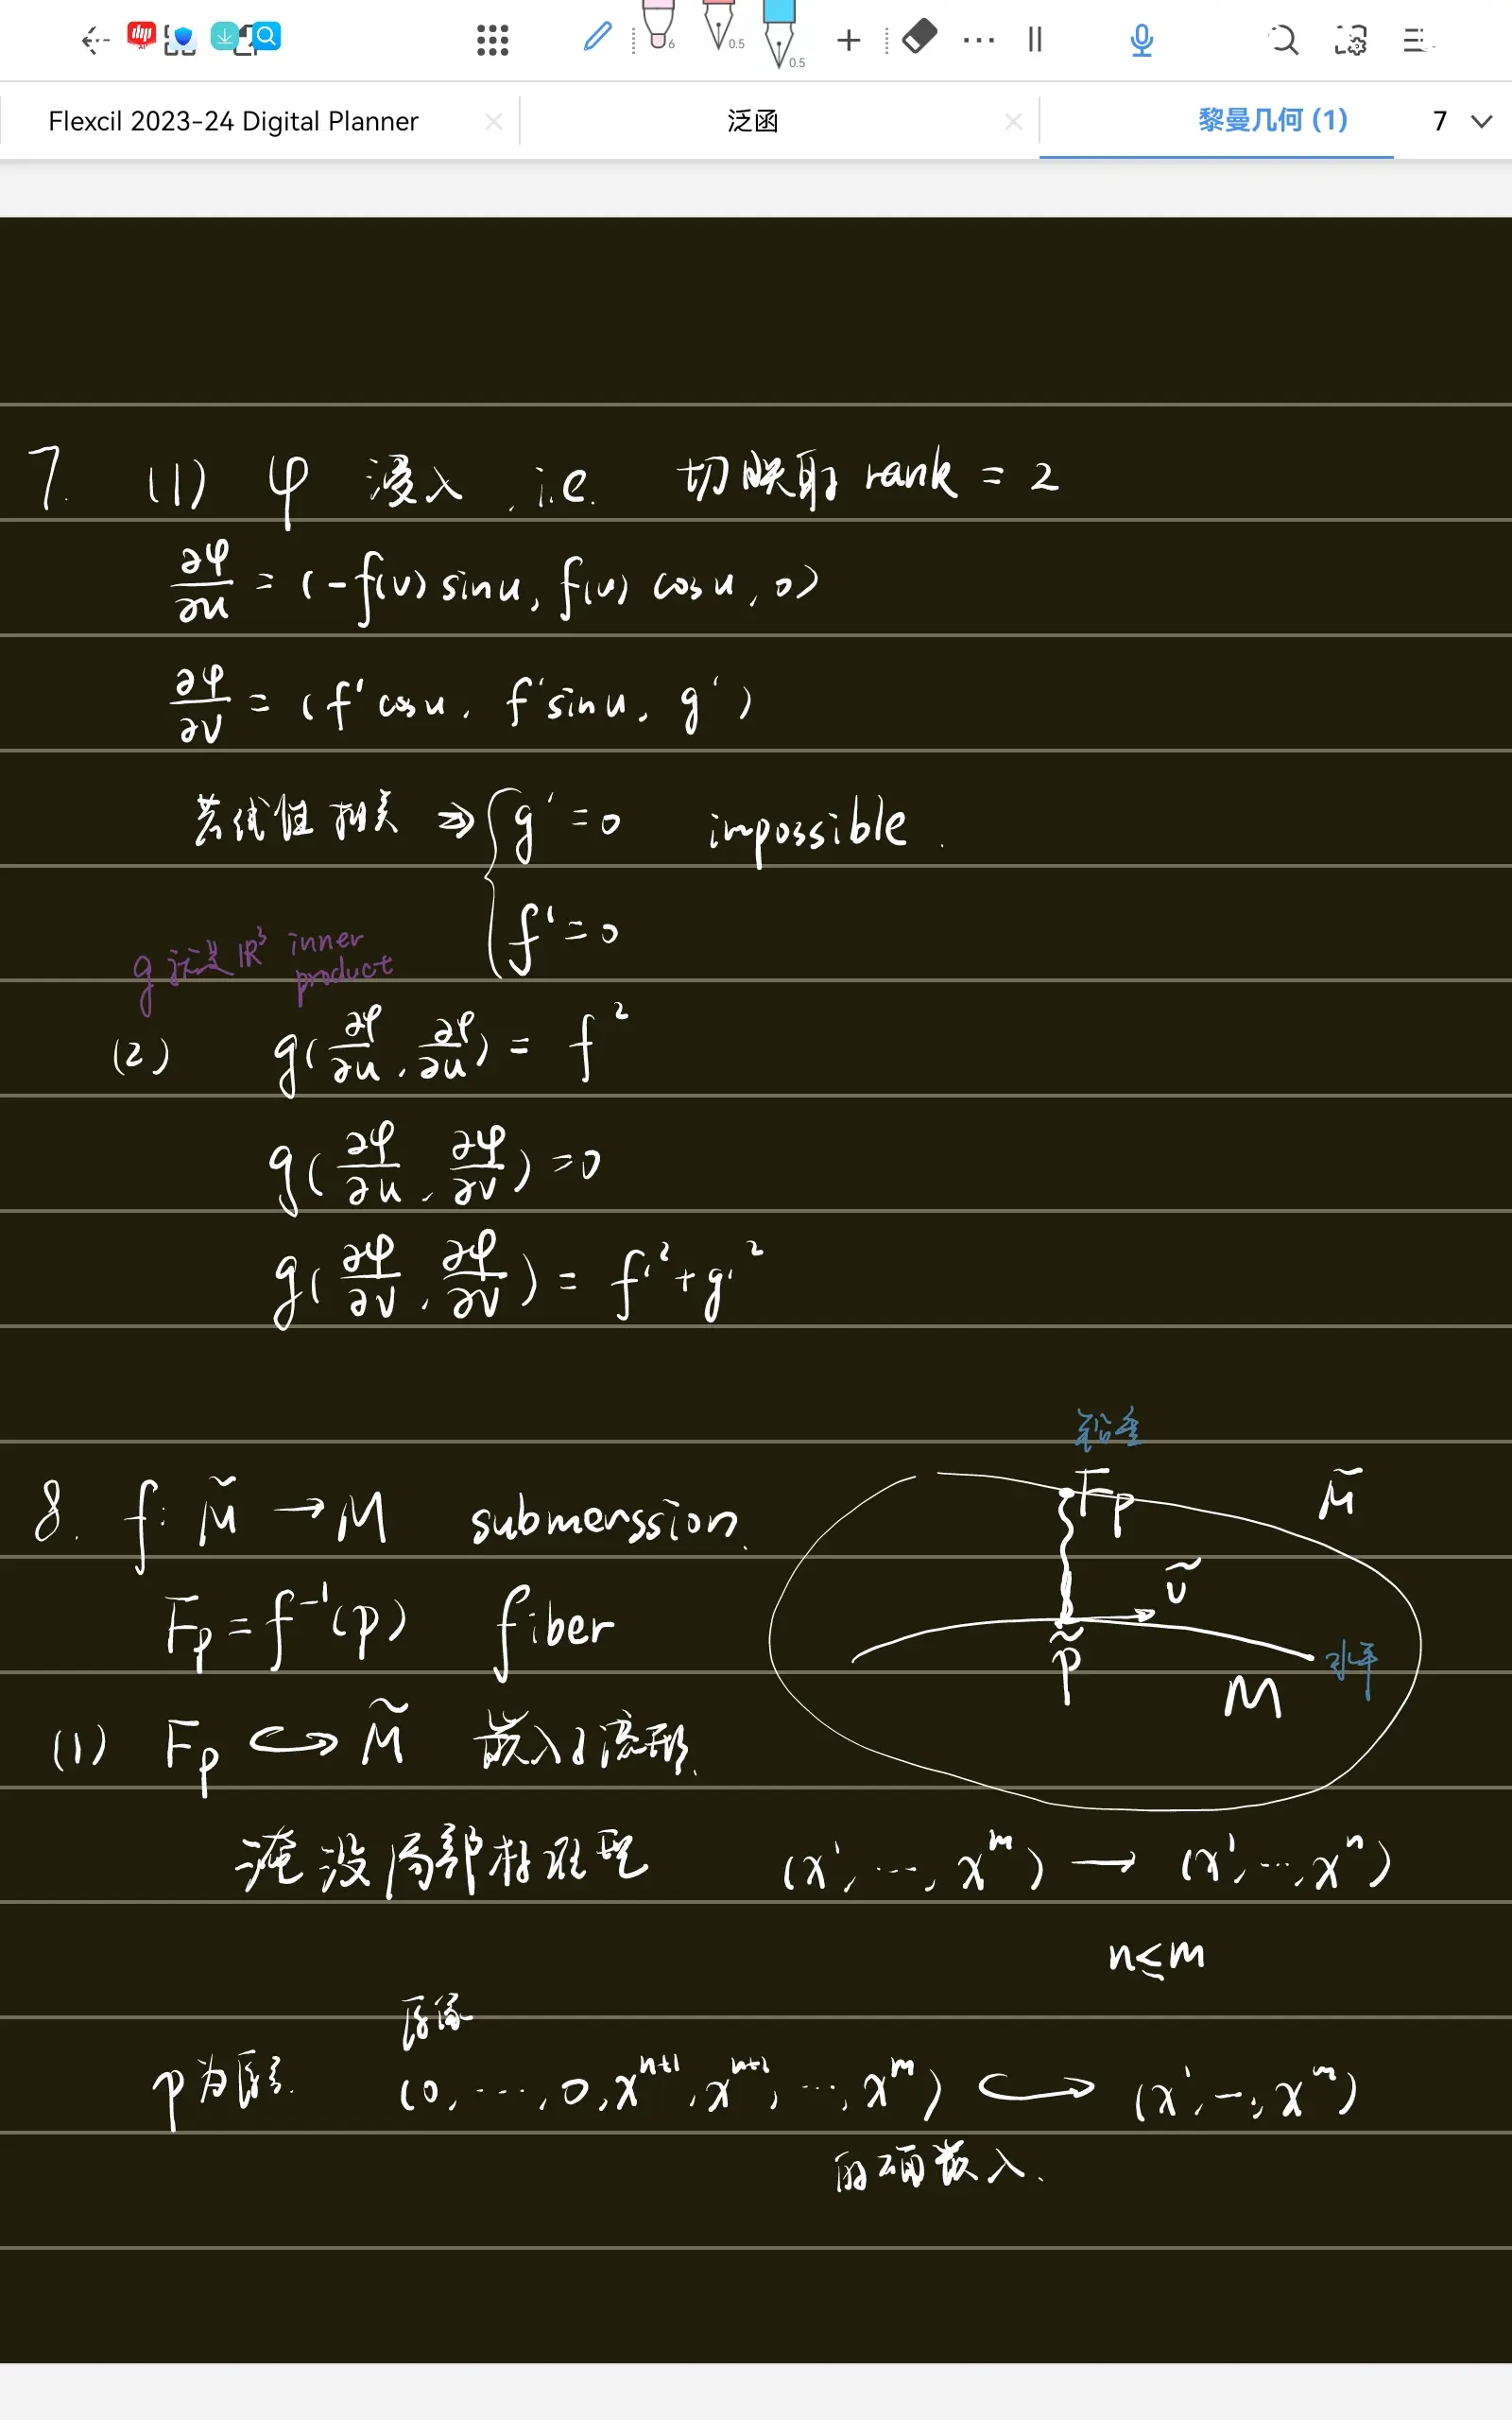 6 0.5 0.5
Flexcil 2023-24 Digital Planner 泛函 黎曼几何 (1) 7
7. (1) φ 浸入, i.e. 切映射 rank = 2
∂φ/∂u = (-f(v) sinu, f(v) cosu, 0)
∂φ/∂v = (f' cosu, f' sinu, g')
若线性相关 ⇒ { g' = 0 impossible.
f' = 0
g 就是 ℝ³ inner
product
(2) g(∂φ/∂u, ∂φ/∂u) = f²
g(∂φ/∂u, ∂φ/∂v) = 0
g(∂φ/∂v, ∂φ/∂v) = f'² + g'²
铅垂
8. f: M̃ → M submerssion.
F_p M̃
F_p = f⁻¹(p) fiber
ṽ
p̃
M 水平
(1) F_p ↪ M̃ 嵌入子流形.
淹没局部标准型 (x¹, ..., x^m) → (x¹, ..., x^n)
n ≤ m
原像
p为原点. (0, ..., 0, x^{n+1}, x^{n+1}, ..., x^m) ↪ (x¹, ..., x^m)
嵌入.